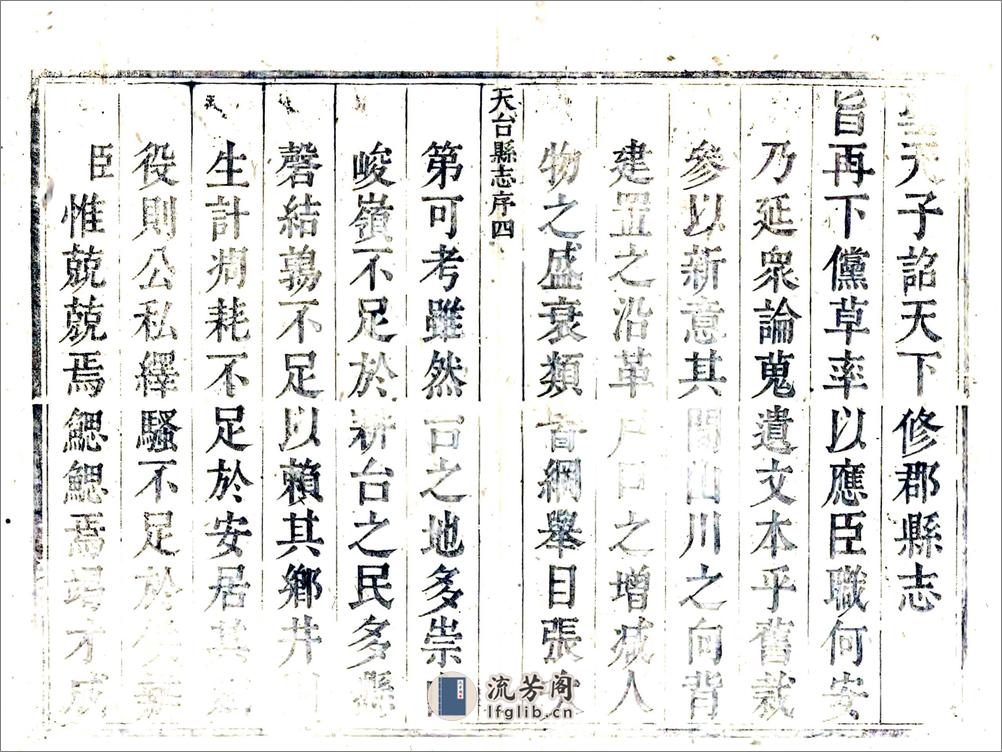 天子詔天下修郡縣志
旨再下儻草率以應臣職何安
乃延衆論蒐遺文本乎舊裁
參以新意其間山川之向背
建置之沿革戶口之增減人
物之盛衰類皆綱舉目張次
天台縣志序四
第可考雖然台之地多崇
峻嶺不足於耕台之民多縣
磬結鶉不足以賴其鄉井
生計凋耗不足於安居其
役則公私繹騷不足於
臣惟兢兢焉鰓鰓焉竭才
流芳阁
lfglib.cn